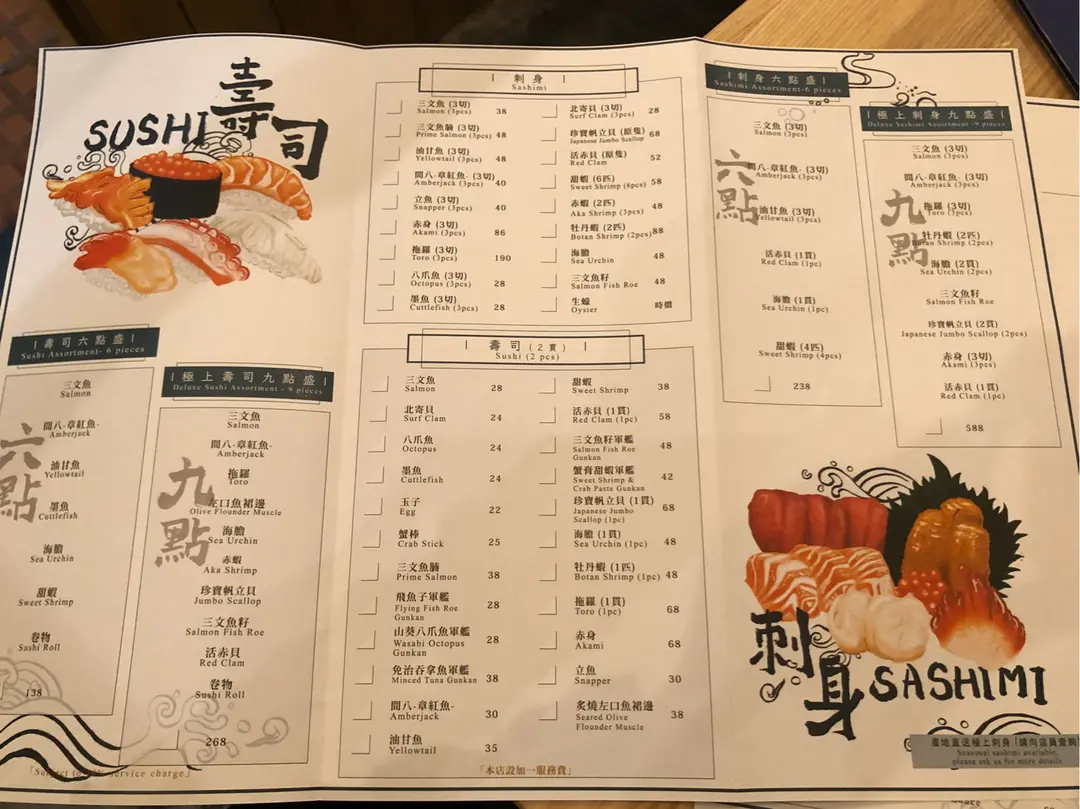 SUSHI
壽司
壽司六點盛
Sushi Assortment- 6 pieces
六點
三文魚
Salmon
間八-章紅魚-
Amberjack
油甘魚
Yellowtail
墨魚
Cuttlefish
海膽
Sea Urchin
甜蝦
Sweet Shrimp
卷物
Sushi Roll
138
極上壽司九點盛
Deluxe Sushi Assortment - 9 pieces
九點
三文魚
Salmon
間八-章紅魚-
Amberjack
拖羅
Toro
左口魚裙邊
Olive Flounder Muscle
海膽
Sea Urchin
赤蝦
Aka Shrimp
珍寶帆立貝
Jumbo Scallop
三文魚籽
Salmon Fish Roe
活赤貝
Red Clam
卷物
Sushi Roll
268
service charge」
刺身
Sashimi
三文魚 (3切)
Salmon (3pcs) 38
三文魚腩 (3切)
Prime Salmon (3pcs) 48
油甘魚 (3切)
Yellowtail (3pcs) 48
間八-章紅魚- (3切)
Amberjack (3pcs) 40
立魚 (3切)
Snapper (3pcs) 40
赤身 (3切)
Akami (3pcs) 86
拖羅 (3切)
Toro (3pcs) 190
八爪魚 (3切)
Octopus (3pcs) 28
墨魚 (3切)
Cuttlefish (3pcs) 28
北寄貝 (3切)
Surf Clam (3pcs) 28
珍寶帆立貝 (原隻)
Japanese Jumbo Scallop 68
活赤貝 (原隻)
Red Clam 52
甜蝦 (6匹)
Sweet Shrimp (6pcs) 58
赤蝦 (2匹)
Aka Shrimp (3pcs) 48
牡丹蝦 (2匹)
Botan Shrimp (2pcs) 88
海膽
Sea Urchin 48
三文魚籽
Salmon Fish Roe 48
生蠔
Oyster 時價
壽司 (2貫)
Sushi (2 pcs)
三文魚
Salmon 28
北寄貝
Surf Clam 24
八爪魚
Octopus 24
墨魚
Cuttlefish 24
玉子
Egg 22
蟹棒
Crab Stick 25
三文魚腩
Prime Salmon 38
飛魚子軍艦
Flying Fish Roe
Gunkan 28
山葵八爪魚軍艦
Wasabi Octopus
Gunkan 28
免治吞拿魚軍艦
Minced Tuna Gunkan 38
間八-章紅魚-
Amberjack 30
油甘魚
Yellowtail 35
甜蝦
Sweet Shrimp 38
活赤貝 (1貫)
Red Clam (1pc) 58
三文魚籽軍艦
Salmon Fish Roe
Gunkan 48
蟹膏甜蝦軍艦
Sweet Shrimp &
Crab Paste Gunkan 42
珍寶帆立貝 (1貫)
Japanese Jumbo
Scallop (1pc) 68
海膽 (1貫)
Sea Urchin (1pc) 48
牡丹蝦 (1匹)
Botan Shrimp (1pc) 48
拖羅 (1貫)
Toro (1pc) 68
赤身
Akami 68
立魚
Snapper 30
炙燒左口魚裙邊
Seared Olive
Flounder Muscle 38
「本店設加一服務費」
刺身六點盛
Sashimi Assortment-6 pieces
六點
三文魚 (3切)
Salmon (3pcs)
間八-章紅魚- (3切)
Amberjack (3pcs)
油甘魚 (3切)
Yellowtail (3pcs)
活赤貝 (1貫)
Red Clam (1pc)
海膽 (1貫)
Sea Urchin (1pc)
甜蝦 (4匹)
Sweet Shrimp (4pcs)
238
極上刺身九點盛
Deluxe Sashimi Assortment -9 pieces
九點
三文魚 (3切)
Salmon (3pc)
間八-章紅魚- (3切)
Amberjack (3pcs)
拖羅 (3切)
Toro (3pcs)
牡丹蝦 (2匹)
Botan Shrimp (2pcs)
海膽 (2貫)
Sea Urchin (2pcs)
三文魚籽
Salmon Fish Roe
珍寶帆立貝 (2貫)
Japanese Jumbo Scallop (2pcs)
赤身 (3切)
Akami (3pcs)
活赤貝 (1貫)
Red Clam (1pc)
588
刺身
SASHIMI
產地直送極上刺身「請向店員查詢
Seasonal sashimi available,
please ask us for more details.